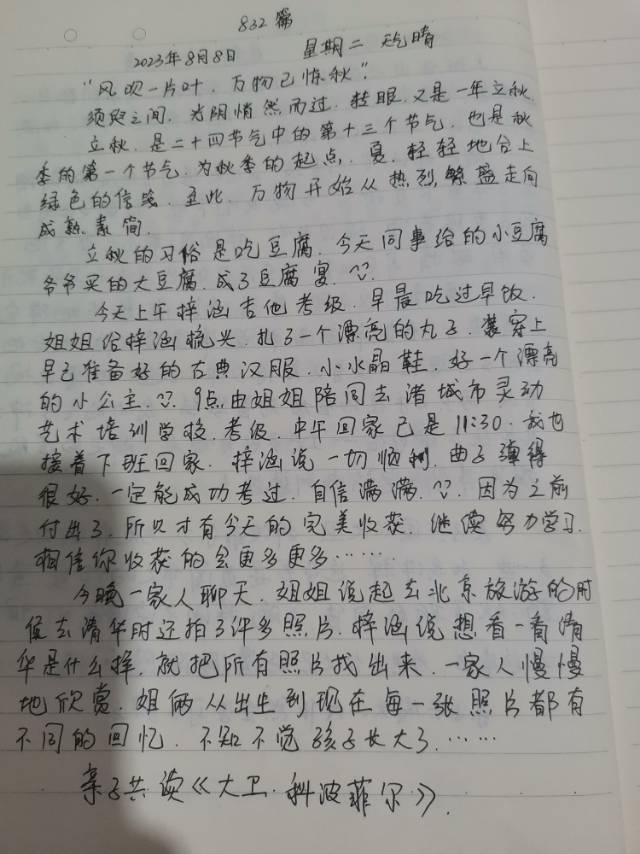 832篇
2023年8月8日 星期二 天气晴
“风吹一片叶，万物已惊秋”。
须臾之间，光阴悄然而过，转眼，又是一年立秋，
立秋，是二十四节气中的第十三个节气，也是秋
季的第一个节气，为秋季的起点，夏，轻轻地合上
绿色的信笺，至此，万物开始从热烈繁盛走向
成熟素简。
立秋的习俗是吃豆腐，今天同事给的小豆腐
爷爷买的大豆腐，成了豆腐宴，
今天上午梓涵吉他考级，早晨吃过早饭，
姐姐给梓涵梳头，扎了一个漂亮的丸子，装穿上
早已准备好的古典汉服，小水晶鞋，好一个漂亮
的小公主，9点由姐姐陪同去诸城市灵动
艺术培训学校，考级，中午回家已是11:30，我也
接着下班回家，梓涵说一切顺利，曲子弹得
很好，一定能成功考过，自信满满，因为之前
付出了，所以才有今天的完美收获，继续努力学习，
相信你收获的会更多更多……
今晚一家人聊天，姐姐说起去北京旅游的时
候去清华时还拍了许多照片，梓涵说想看一看清
华是什么样，就把所有照片找出来，一家人慢慢
地欣赏，姐俩从出生到现在每一张照片都有
不同的回忆，不知不觉孩子长大了，……
亲子共读《大卫·科波菲尔》.